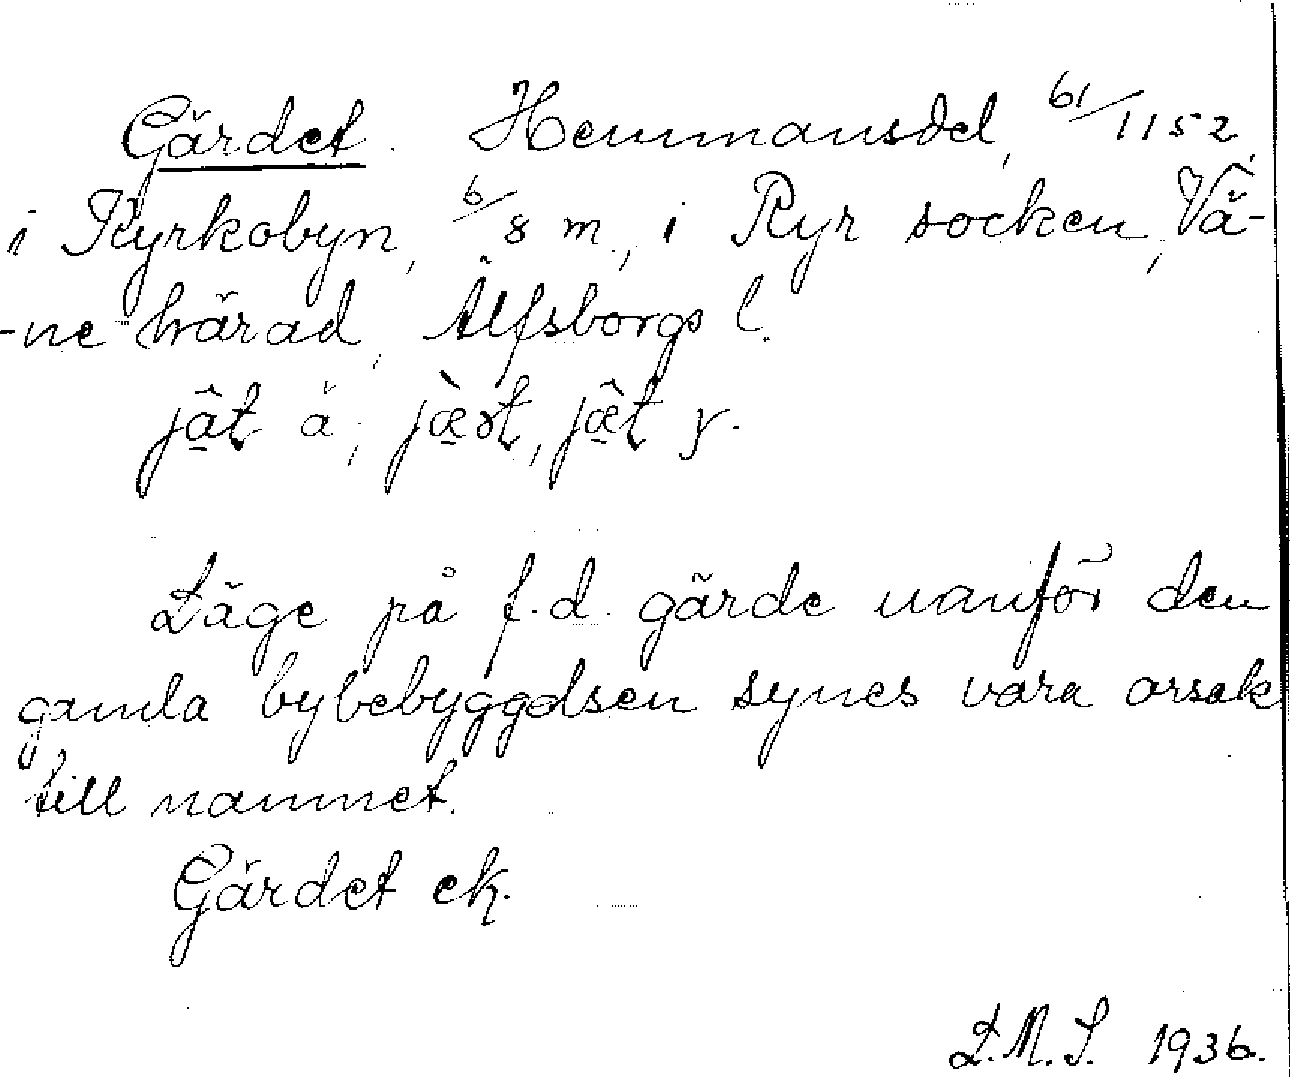 Gärdet. Hemmansdel, 61/1152,
i Kyrkobyn, 6/8 m., i Ryr socken, Vä-
-ne härad, Älfsborgs l.
jâ̱t ä; jæ̱̀rt, jæ̱̂t y.
Läge på f.d. gärde nanför den
gamla bybebyggdsen synes vara orsak
till namnet.
Gärdet ek.
L.M.S. 1936.